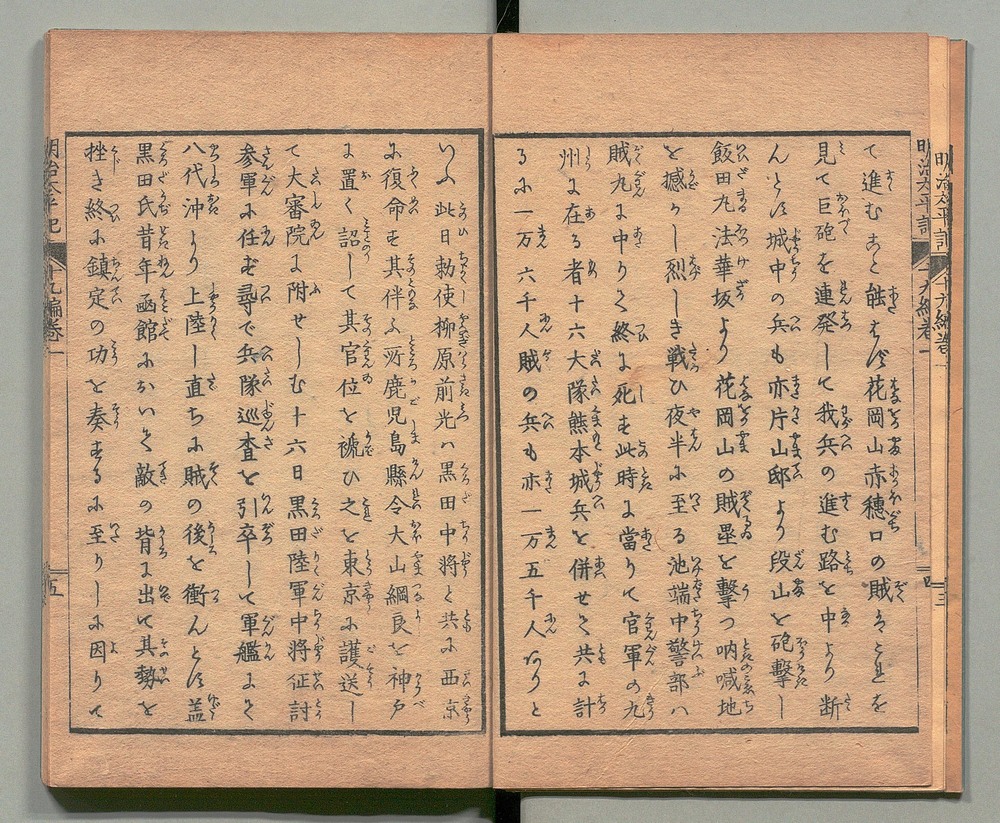 て進むこと能はず花岡山赤穗口の賊はこれを
見て巨砲を連発して我兵の進む路を中より断
んとす城中の兵も亦片山邸より段山を砲撃し
飯田丸法華坂より花岡山の賊塁を擊つ吶喊地
を撼かし烈しき戦ひ夜半に至る池端中警部ハ
賊丸に中りて終に死も此時に當りて官軍の九
州に在る者十六大隊熊本城兵を併せて共に計
るに一万六千人賊の兵も亦一万五千人ありと
いふ此日勅使柳原前光ハ黒田中将と共に西京
に復命も其伴ふ所鹿児島縣令大山綱良を神戸
に置く詔して其官位を褫ひ之を東京に護送し
て大審院に附せしむ十六日黒田陸軍中将征討
参軍に任ず尋で兵隊巡査を引卒して軍艦にて
八代沖より上陸し直ちに賊の後を衝んとす盖
黒田氏昔年函館にかいて敵の背に出て其勢を
挫き終に鎮定の功を奏するに至りしに因りて
明治太平記
十九編巻一
五
明治太平記
十九編巻一
四
明治太平記
十九編巻一
三